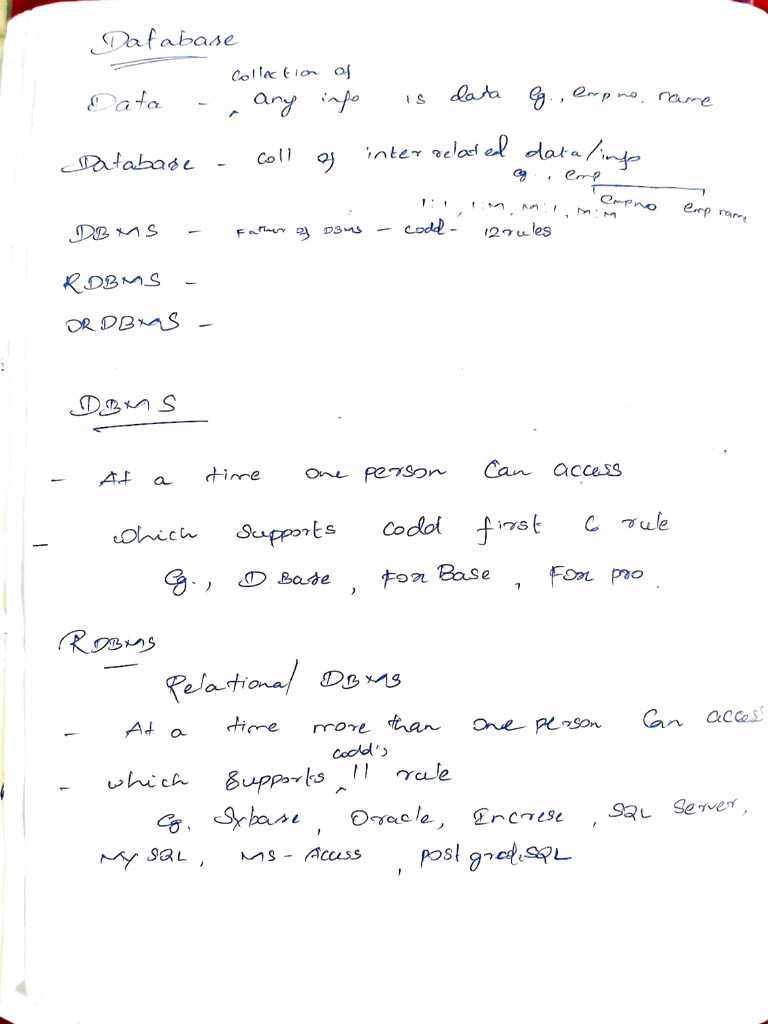 Database
collection of
Data - ‸ any info is data Eg., empno, name
Database - coll of interrelated data/info
eg., emp
1:1, 1:M, M:1, M:M empno empname
DBMS - Father of DBMS - codd - 12 rules
RDBMS -
ORDBMS -
DBMS
- At a time one person can access
- which supports codd first 6 rule
Eg., D Base, Fox Base, Fox pro.
RDBMS
Relational DBMS
- At a time more than one person can access
codd's
- which supports ‸ 11 rule
Eg. Sybase, Oracle, Encrese, SQL Server,
My SQL, MS-Access, postgredSQL